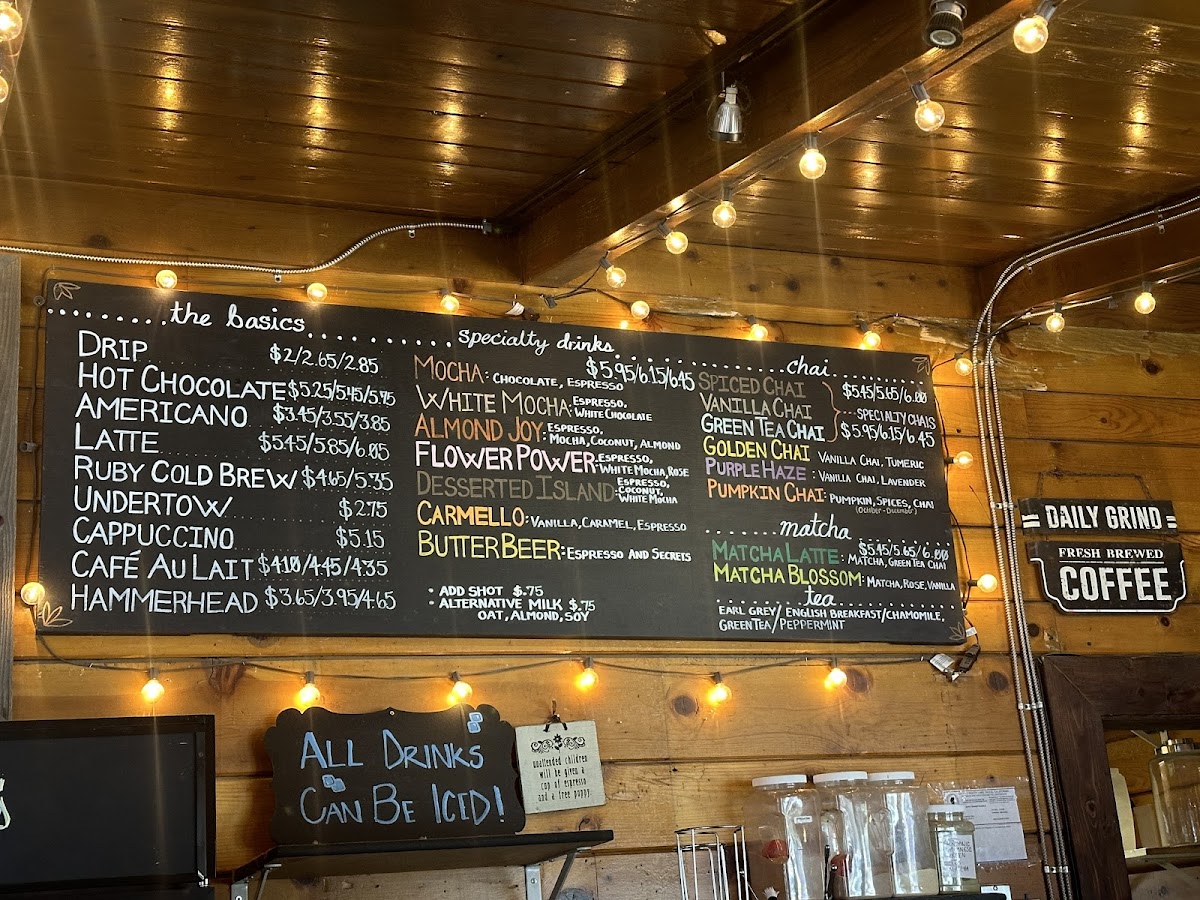 the basics
DRIP $2/2.65/2.85
HOT CHOCOLATE $5.25/5.45/5.95
AMERICANO $3.45/3.55/3.85
LATTE $5.45/5.85/6.05
RUBY COLD BREW $4.65/5.35
UNDERTOW $2.75
CAPPUCCINO $5.15
CAFÉ AU LAIT $4.10/4.45/4.35
HAMMERHEAD $3.65/3.95/4.65
specialty drinks
$5.95/6.15/6.45
MOCHA: CHOCOLATE, ESPRESSO
WHITE MOCHA: ESPRESSO,
WHITE CHOCOLATE
ALMOND JOY: ESPRESSO,
MOCHA, COCONUT, ALMOND
FLOWER POWER: ESPRESSO,
WHITE MOCHA, ROSE
DESSERTED ISLAND: ESPRESSO,
COCONUT,
WHITE MOCHA
CARMELLO: VANILLA, CARAMEL, ESPRESSO
BUTTER BEER: ESPRESSO AND SECRETS
• ADD SHOT $.75
• ALTERNATIVE MILK $.75
OAT, ALMOND, SOY
chai
SPICED CHAI $5.45/5.65/6.00
VANILLA CHAI SPECIALTY CHAIS
GREEN TEA CHAI $5.95/6.15/6.45
GOLDEN CHAI VANILLA CHAI, TUMERIC
PURPLE HAZE: VANILLA CHAI, LAVENDER
PUMPKIN CHAI: PUMPKIN, SPICES, CHAI
(October - December)
matcha
$5.45/5.65/6.00
MATCHA LATTE: MATCHA, GREEN TEA CHAI
MATCHA BLOSSOM: MATCHA, ROSE, VANILLA
tea
EARL GREY/ENGLISH BREAKFAST/CHAMOMILE,
GREEN TEA/PEPPERMINT
DAILY GRIND
FRESH BREWED
COFFEE
ALL DRINKS
CAN BE ICED!
unattended children
will be given a
cup of espresso
and a free puppy.